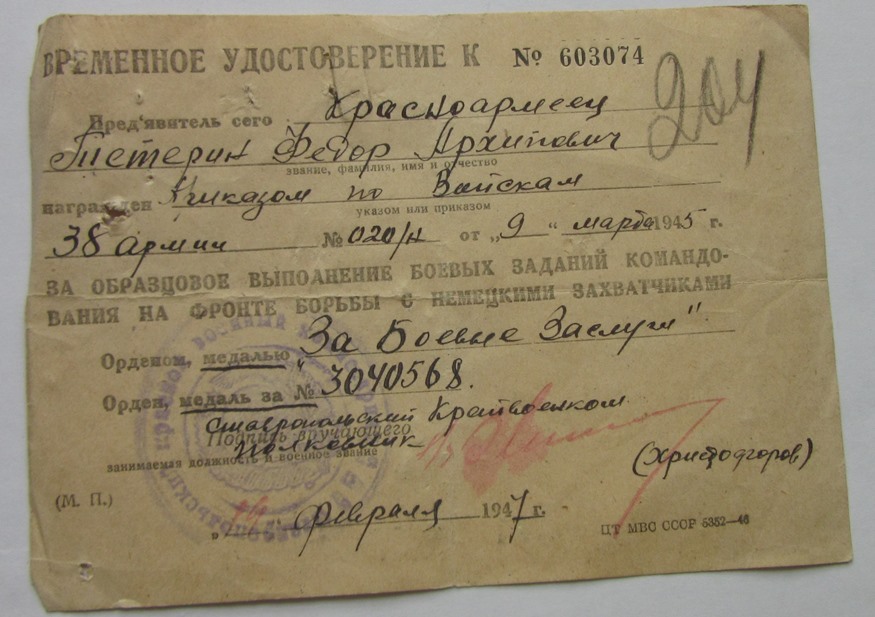 ВРЕМЕННОЕ УДОСТОВЕРЕНИЕ К № 603074
204
Пред'явитель сего Красноармеец
Тетерин Федор Архипович
звание, фамилия, имя и отчество
награжден Приказом по Войскам
указом или приказом
38 армии № 020/н от „9" марта 1945 г.
ЗА ОБРАЗЦОВОЕ ВЫПОЛНЕНИЕ БОЕВЫХ ЗАДАНИЙ КОМАНДО-
ВАНИЯ НА ФРОНТЕ БОРЬБЫ С НЕМЕЦКИМИ ЗАХВАТЧИКАМИ
Орденом, медалью „За Боевые Заслуги"
Орден, медаль за № 3040568.
Ставропольский Крайвоенком
Подпись вручающего
полковник
занимаемая должность и военное звание
(Христофоров)
(М. П.)
„ " февраля 1947 г.
ЦТ МВС СССР 6352—46